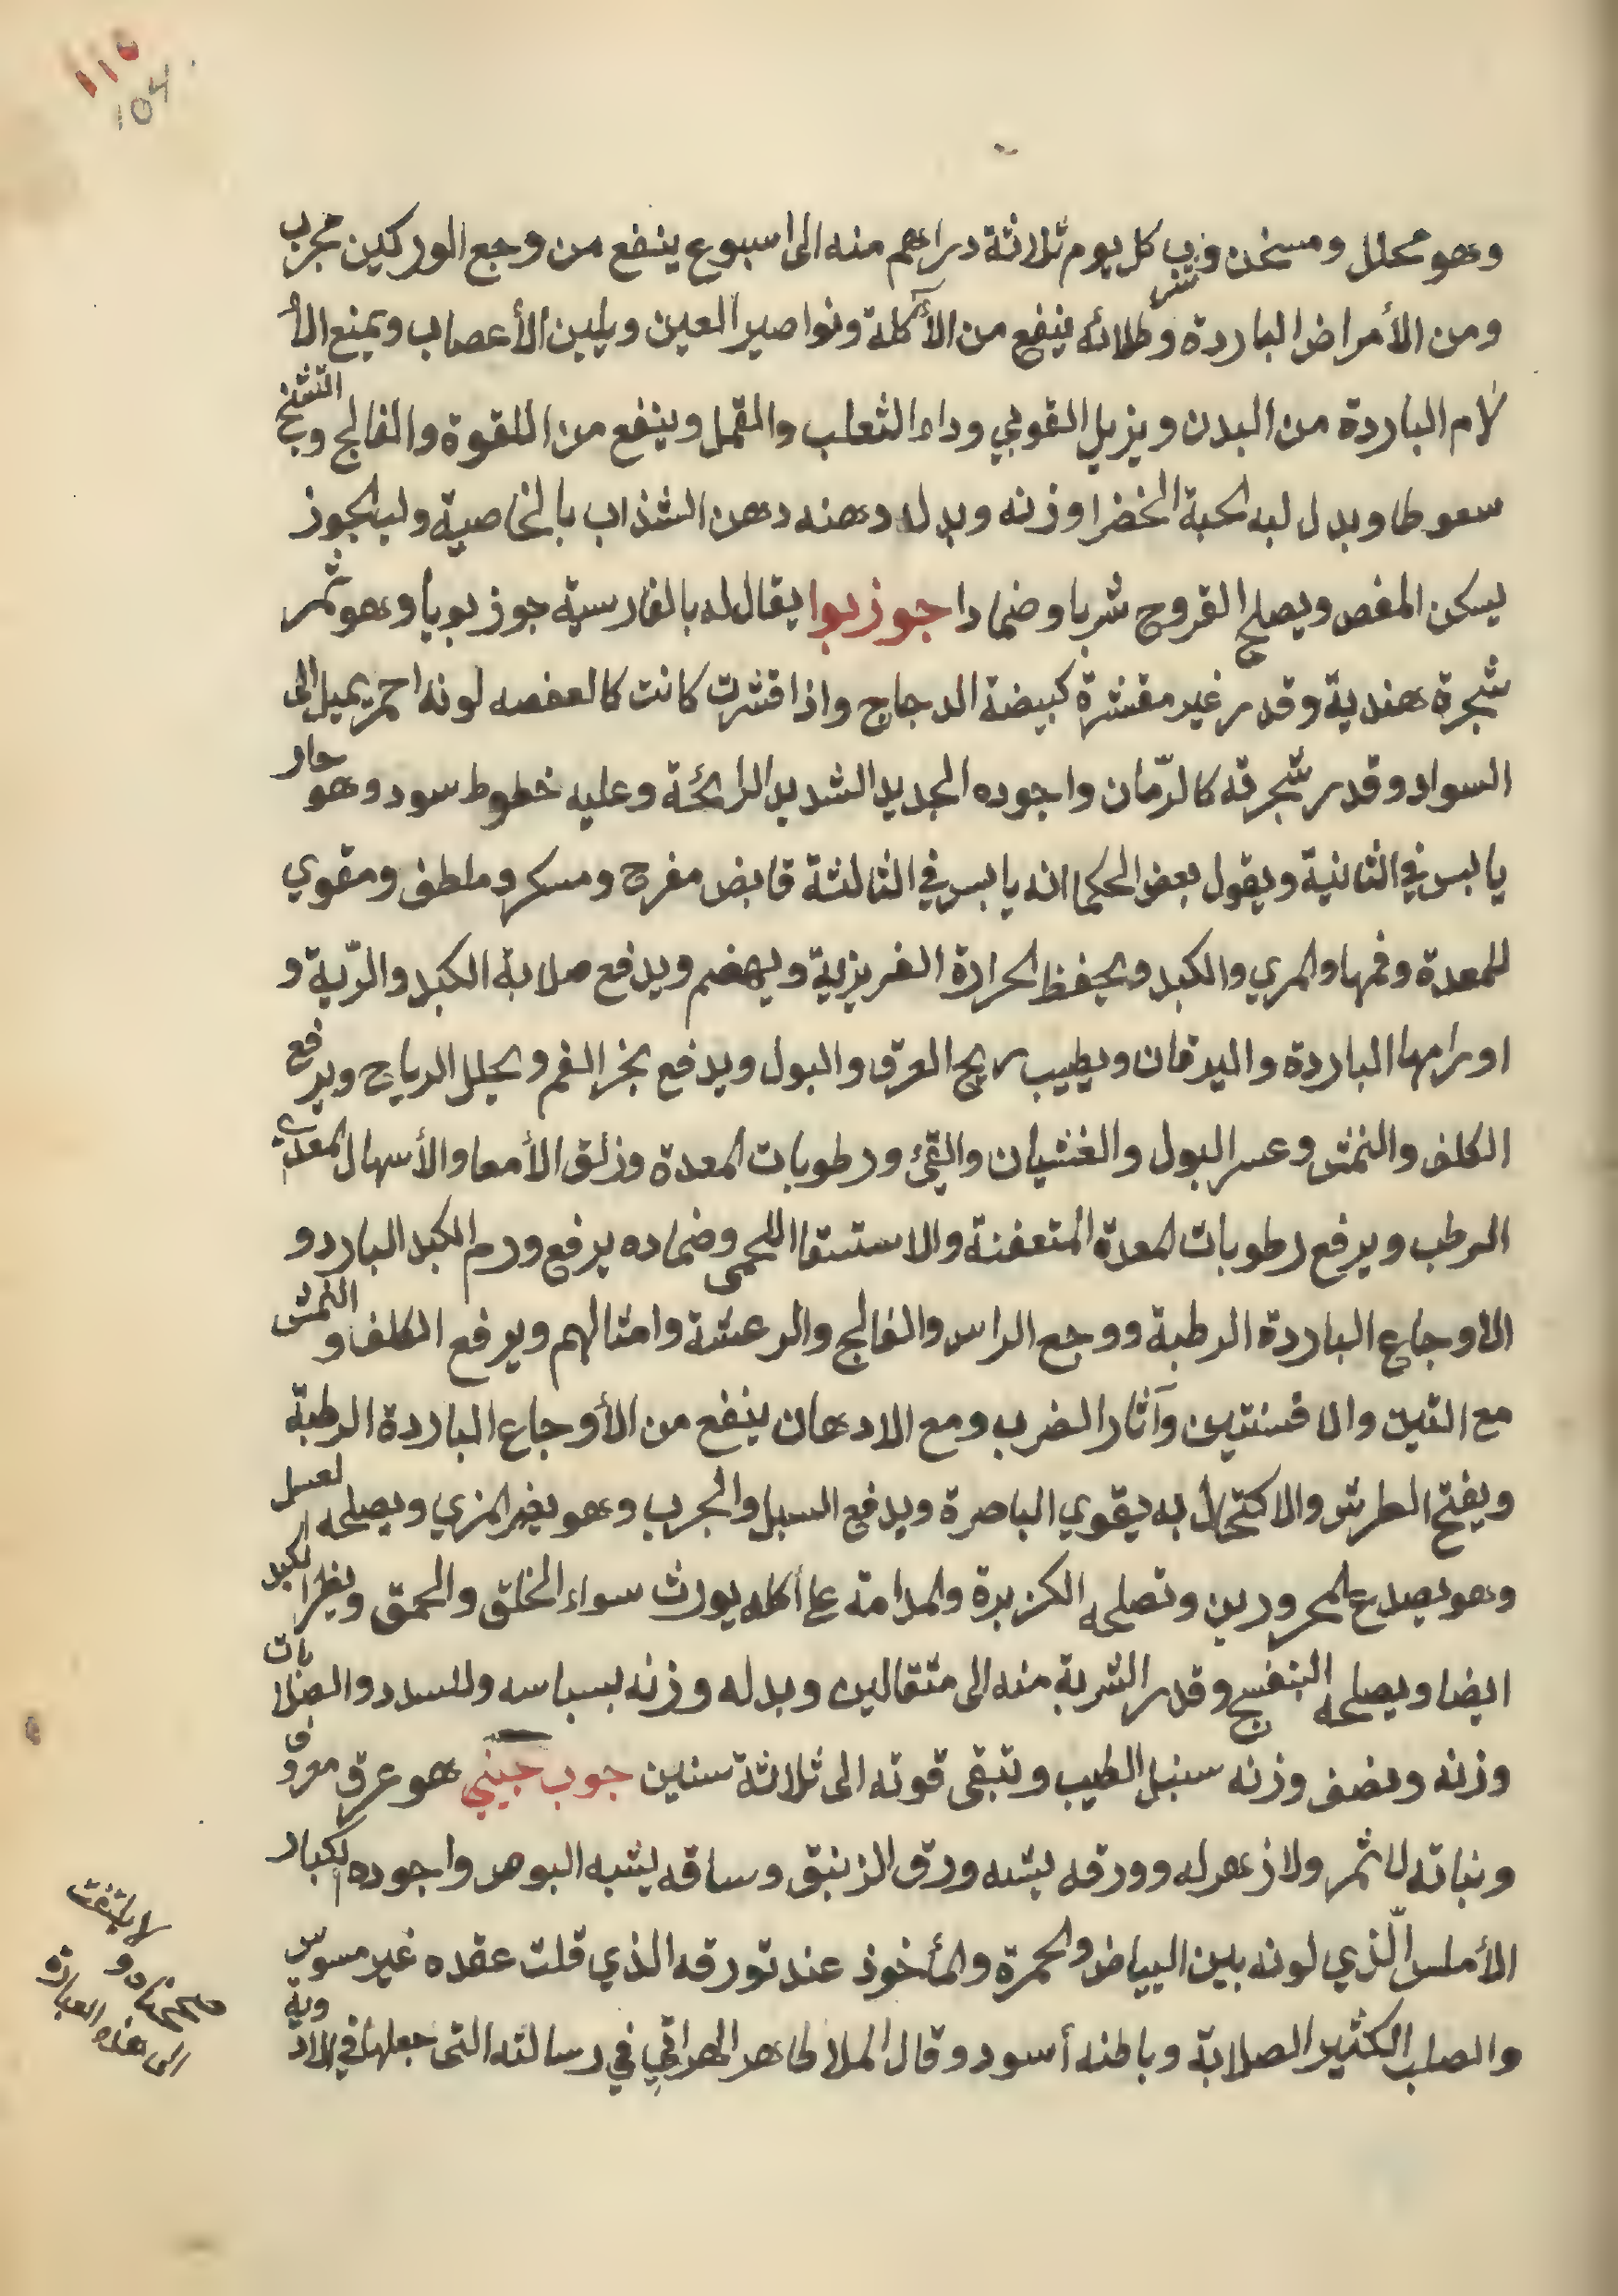 ١١٥
104
وهو محلل ومسخن وشرب كل يوم ثلاثة دراهم منه الى اسبوع ينفع من وجع الوركين مجرب
ومن الأمراض الباردة وطلائه ينفع من الآكلة ونواصير العين ويلين الأعصاب ويمنع الأ
لام الباردة من البدن ويزيل القوبي وداء الثعلب والقمل وينفع من اللقوة والفالج والتشنج
سعوطا وبدل لبه الحبة الخضرا وزنه وبدله دهنه دهن الشذاب بالخاصية ولب الجوز
يسكن المغص ويصلح القروح شربا وضمادا جوز بوا يقال له بالفارسية جوز بويا وهو ثمر
شجرة هندية وقدر غير مقشرة كبيضة الدجاج واذا قشرت كانت كالعفصه لونه احمر يميل الى
السواد وقدر شجرته كالرّمان واجوده الجديد الشديد الرائحة وعليه خطوط سود وهو حار
يابس في الثانية ويقول بعض الحكما انه يابس في الثالثة قابض مفرح ومسكر وملطف ومقوي
للمعدة وفمها والمري والكبد ويحفظ الحرارة الغريزية ويهضم ويدفع صلابة الكبد والرّية و
اورامها الباردة واليرقان ويطيب ريح العرق والبول ويدفع بخر الفم ويحلل الرياح ويرفع
الكلف والنمش وعسر البول والغشيان والقيء ورطوبات المعدة وزلق الأمعا والأسهال المعدي
الرطب ويرفع رطوبات المعدة المتعفنة والاستسقا اللحمي وضماده يرفع ورم الكبد البارد و
الاوجاع الباردة الرطبة ووجع الراس والفالج والرعشة وامثالهم ويرفع الكلف والنمش
مع التين والافسنتين وآثار الضرب ومع الادهان ينفع من الأوجاع الباردة الرطبة
ويفتح الطرش والاكتحال به يقوي الباصرة ويدفع السبل والجرب وهو يضر المري ويصلحه العسل
وهو يصدع المحرورين وتصلحه الكزبرة والمدامة على أكله يورث سواء الخلق والحمق ويضر الكبد
ايضا ويصلحه البنفسج وقدر الشربة منه الى مثقالين وبدله وزنه بسباسه وللسدد والصلابات
وزنه ونصف وزنه سنبل الطيب وتبقى قوته الى ثلاثة سنين جوب جيني هو عرق معروف
ونباته لا ثمر ولا زهر له وورقه يشبه ورق الزنبق وساقه يشبه البوص واجوده الكبار
الأملس الّذي لونه بين البياض والحمرة والمأخوذ عند تورقه الذي قلت عقده غير مسوس
والصلب الكثير الصلابة وباطنه أسود وقال الملا طاهر الهراقي في رسالته التى جعلها في الادوية
لا يلتفت
الى هذه العبارة